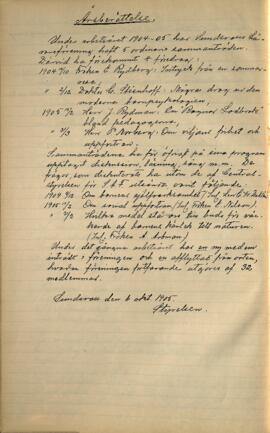 Årsberättelse.
Under arbetsåret 1904-05 har Sundsvalls Lä-
rareförening haft 5 ordinarie sammanträden.
Därvid ha förekommit 4 föredrag:
1904 Fröken E. Rydberg: Intryck från en sommar-
resa.
" Doktor G. Stenhoff: Några drag ur den
moderna barnpsykologien.
1905 Herr J. Bydman: Om "Ragnar Lodbroks"
pedagogerna,
" Herr P. Norberg: Om viljans frihet och
uppfostran.
Sammanträdena ha för öfrigt på sina program
upptagit diskussion, läsning, sång m.m. De
frågor, som diskuterats ha utom de af Central-
styrelsen för S.A.F. utsända varit följande:
1904 Om barnens
1905 Om social uppfostran (Inl. Fröken E. Nilsson).
" Hvilka medel stå oss till buds för väc-
kande af barnens kärlek till naturen.
(Inl. Fröken A. )
Under det gångna arbetsåret har en ny medlem
inträdt i föreningen och en afflyttat från orten,
hvarför föreningen fortfarande utgöres af 32
medlemmar.
Sundsvall den 6 okt 1905.
Styrelsen.